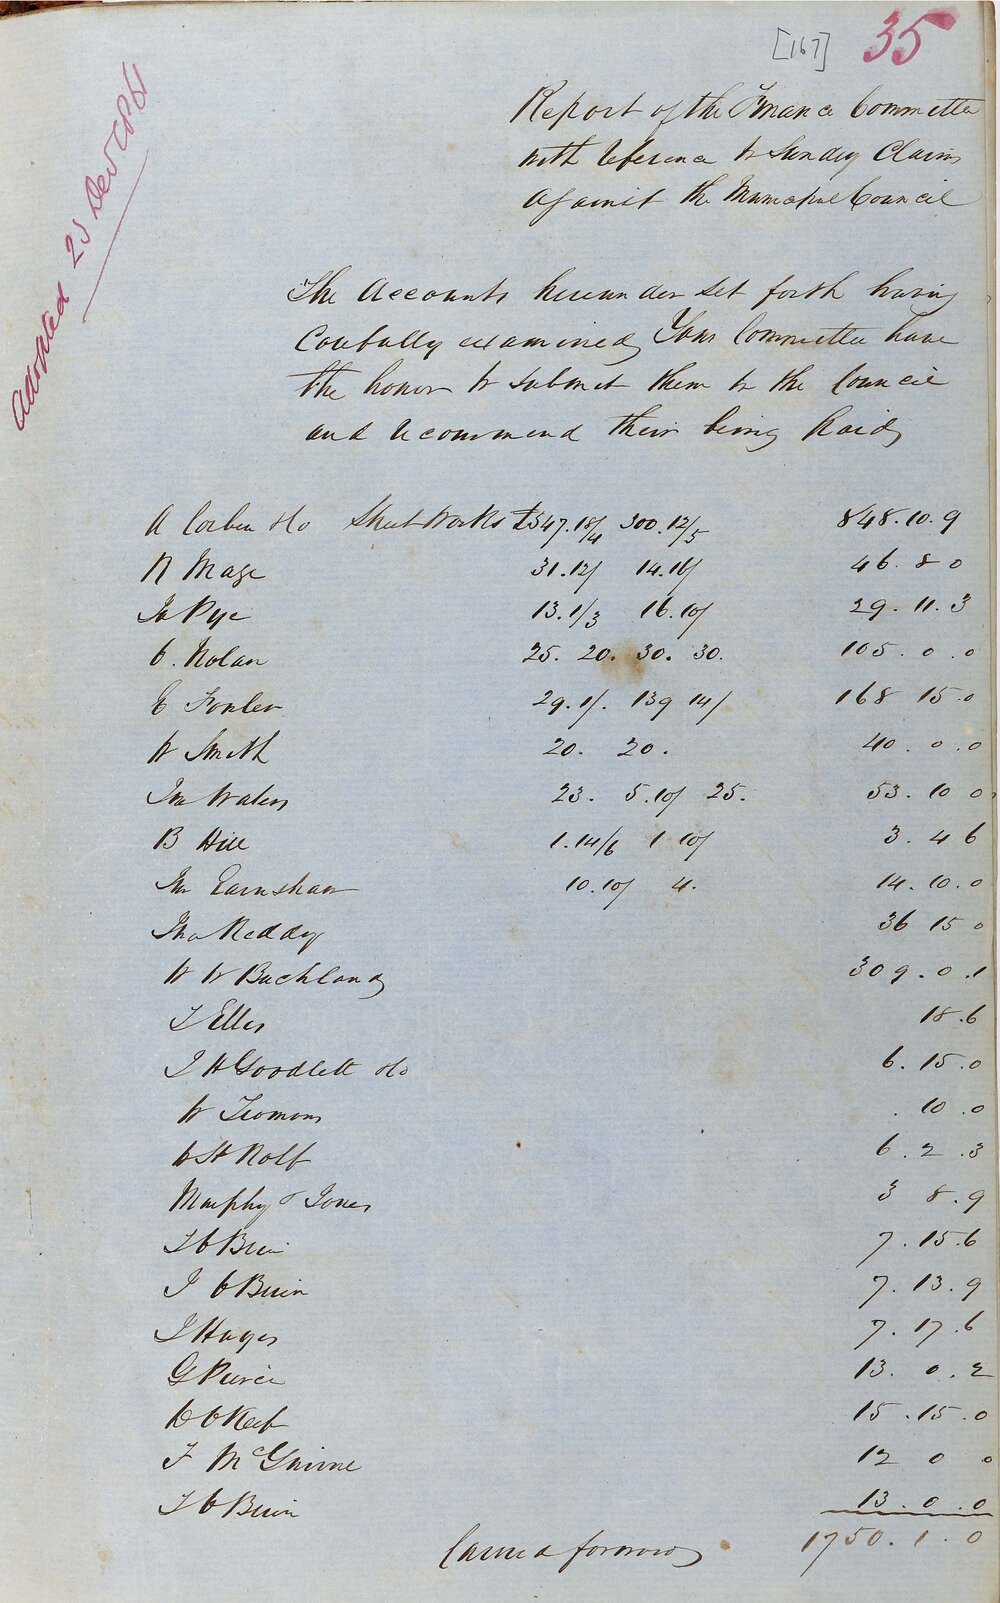 [167] 35
Adopted 23 Decr 1861
Report of the Finance Committee
with reference to Sundry Claims
Against the Municipal Council
The Accounts hereunder set forth having
Carefully examined Your Committee have
the honor to submit them to the Council
and recommend their being Paid
A Corben & Co Street Works £547.18/4 300.12/5 848.10.9
N Mage 31.12/ 14.16/ 46.8 0
Jas Pye 13.1/3 16.10/ 29.11.3
C. Nolan 25. 20. 30. 30. 105.0.0
E Fowler 29.1/. 139 14/ 168 15.0
W Smith 20. 20. 40.0.0
Jno Waters 23. 5.10/ 25. 53.10 0
B Hill 1.14/6 1 10/ 3.4 6
Jno Earnshaw 10.10/ 4. 14.10.0
Jno Reddy 36 15 0
W W Buckland 309.0.1
T Ellis 18.6
J H Goodlett & Co 6.15.0
W 10.0
Rolf 6.2.3
Murphy & Jones 3 8.9
T O Brien 7.15.6
J O Brien 7.13.9
J Hayes 7.17.6
G Pierce 13.0.2
D O Keefe 15.15.0
F McGuirne 12 0 0
T O Brien 13.0.0
Carried forward 1750.1.0